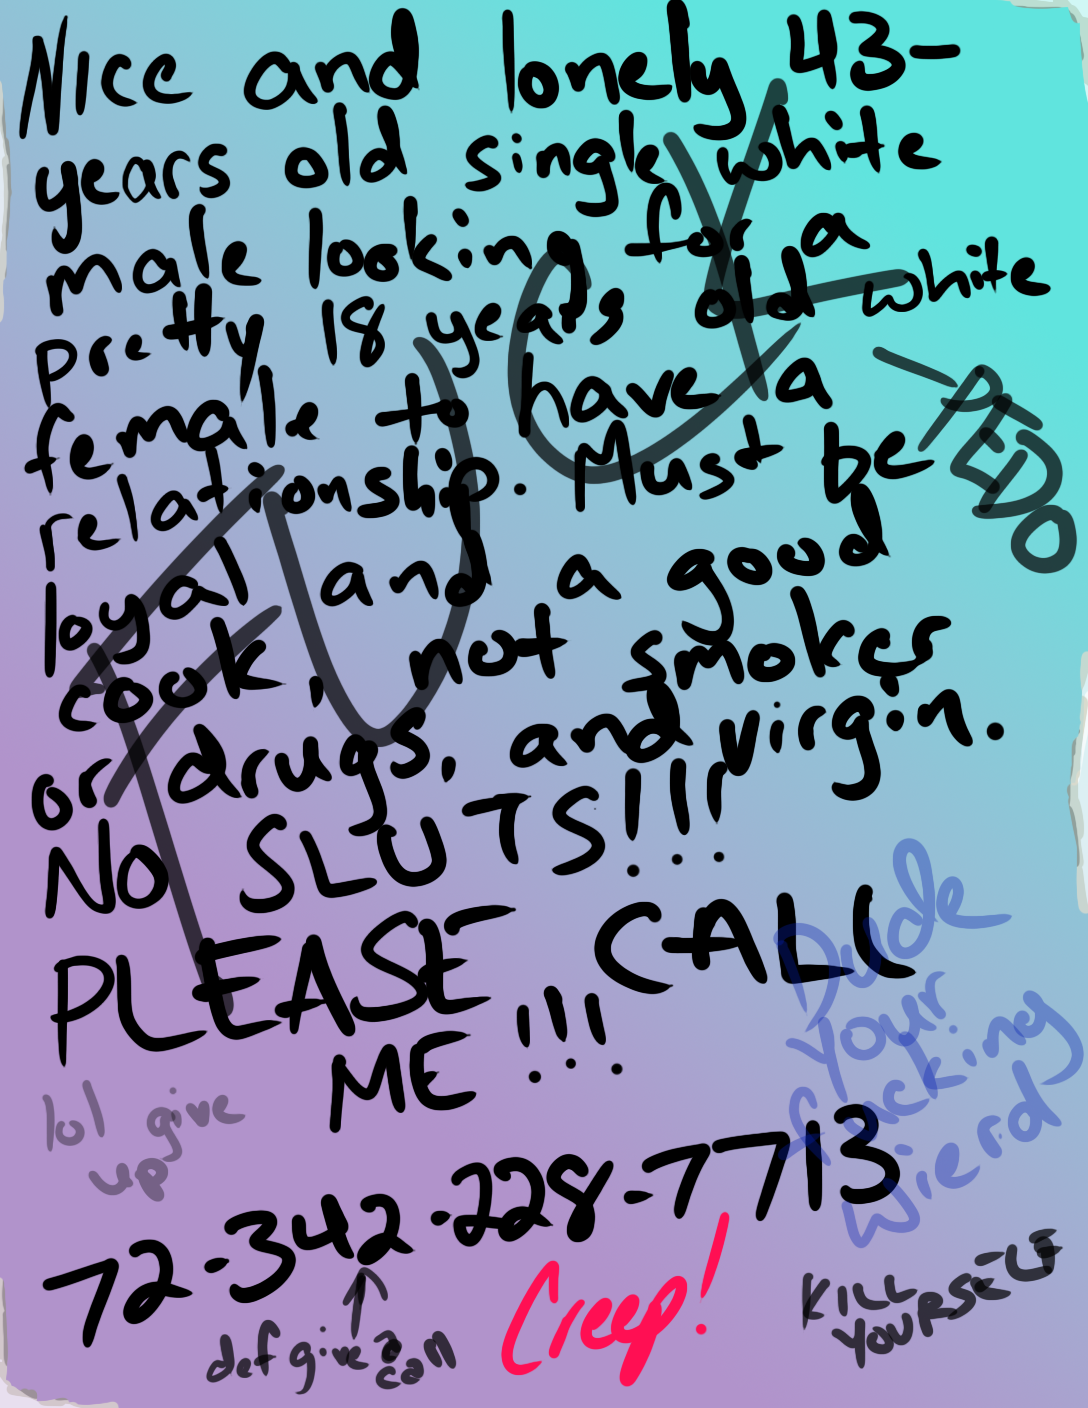 Nice and lonely 43-
years old single white
male looking for a
pretty 18 years old white
female to have a
relationship. Must be
loyal and a good
cook, not smokes
or drugs, and virgin.
NO SLUTS!!!
PLEASE CALL
ME!!!
72-342-228-7713
FU
-PEDO
Dude
your
fucking
wierd
lol give
up
def give a
call
Creep!
KILL
YOURSELF